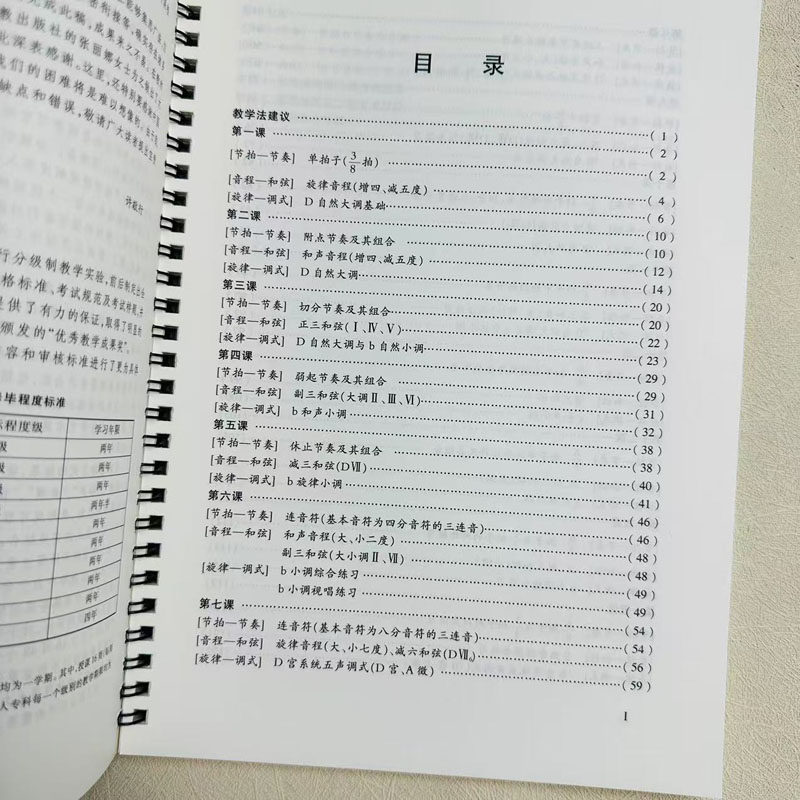 此深表感谢。这里，还特别要感谢
缺点和错误，敬请广大读者提出宝贵
许敬行
行分级制教学实验，前后制定出台
格标准、考试规范及考试样题，并
是供了有力的保证，取得了明显的
颁发的“优秀教学成果奖”。
容和审核标准进行了更为具体
毕程度标准
程度级 学习年限
级 两年
级 两年
级 两年
两年半
两年
两年
两年
两年
四年
目 录
教学法建议 ( 1 )
第一课 ( 2 )
[节拍—节奏] 单拍子(3/8拍) ( 2 )
[音程—和弦] 旋律音程(增四、减五度) ( 4 )
[旋律—调式] D自然大调基础 ( 6 )
第二课 ( 10 )
[节拍—节奏] 附点节奏及其组合 ( 10 )
[音程—和弦] 和声音程(增四、减五度) ( 12 )
[旋律—调式] D自然大调 ( 14 )
第三课 ( 20 )
[节拍—节奏] 切分节奏及其组合 ( 20 )
[音程—和弦] 正三和弦(Ⅰ、Ⅳ、Ⅴ) ( 22 )
[旋律—调式] D自然大调与b自然小调 ( 23 )
第四课 ( 29 )
[节拍—节奏] 弱起节奏及其组合 ( 29 )
[音程—和弦] 副三和弦(大调Ⅱ、Ⅲ、Ⅵ) ( 31 )
[旋律—调式] b和声小调 ( 32 )
第五课 ( 38 )
[节拍—节奏] 休止节奏及其组合 ( 38 )
[音程—和弦] 减三和弦(DⅦ) ( 40 )
[旋律—调式] b旋律小调 ( 41 )
第六课 ( 46 )
[节拍—节奏] 连音符(基本音符为四分音符的三连音) ( 46 )
[音程—和弦] 和声音程(大、小二度) ( 48 )
副三和弦(大小调Ⅱ、Ⅶ) ( 48 )
[旋律—调式] b小调综合练习 ( 49 )
b小调视唱练习 ( 49 )
第七课 ( 54 )
[节拍—节奏] 连音符(基本音符为八分音符的三连音) ( 54 )
[音程—和弦] 旋律音程(大、小七度)、减六和弦(DⅦ₆) ( 56 )
[旋律—调式] D宫系统五声调式(D宫、A徵) ( 59 )
Ⅰ